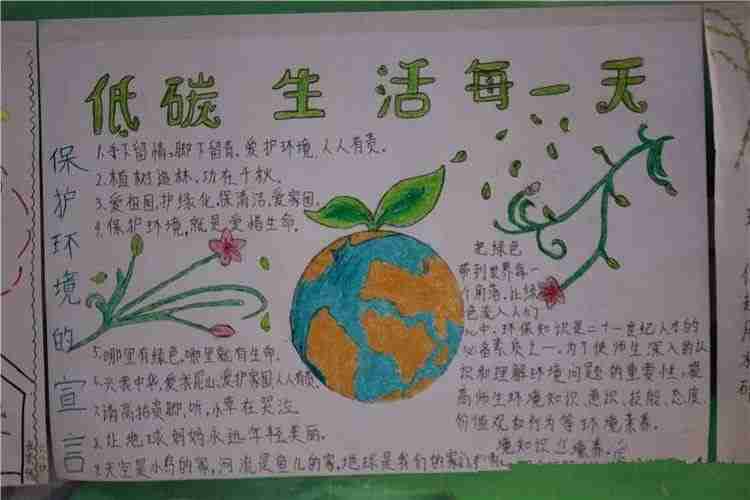 低碳生活每一天
保护环境的宣言
1.手下留情,脚下留青。爱护环境,人人有责。
2.植树造林,功在千秋。
3.爱祖国,护绿化,保清洁,爱家园。
4.保护环境,就是爱惜生命。
5.哪里有绿色,哪里就有生命。
6.兴我中华,爱我昆山,爱护家园人人有责。
7.请高抬贵脚,听,小草在哭泣
8.让地球妈妈永远年轻美丽。
9.天空是小鸟的家,河流是鱼儿的家,地球是我们的家
把绿色
带到世界每一
个角落,让绿
色流入人们
心中,环保知识是二十一世纪人才的
必备素质之一。为了使师生深入的认
识和理解环境问题的重要性,提
高师生环境知识、意识、技能、态度、
价值观和行为等环境素养。
境知识 境素养。